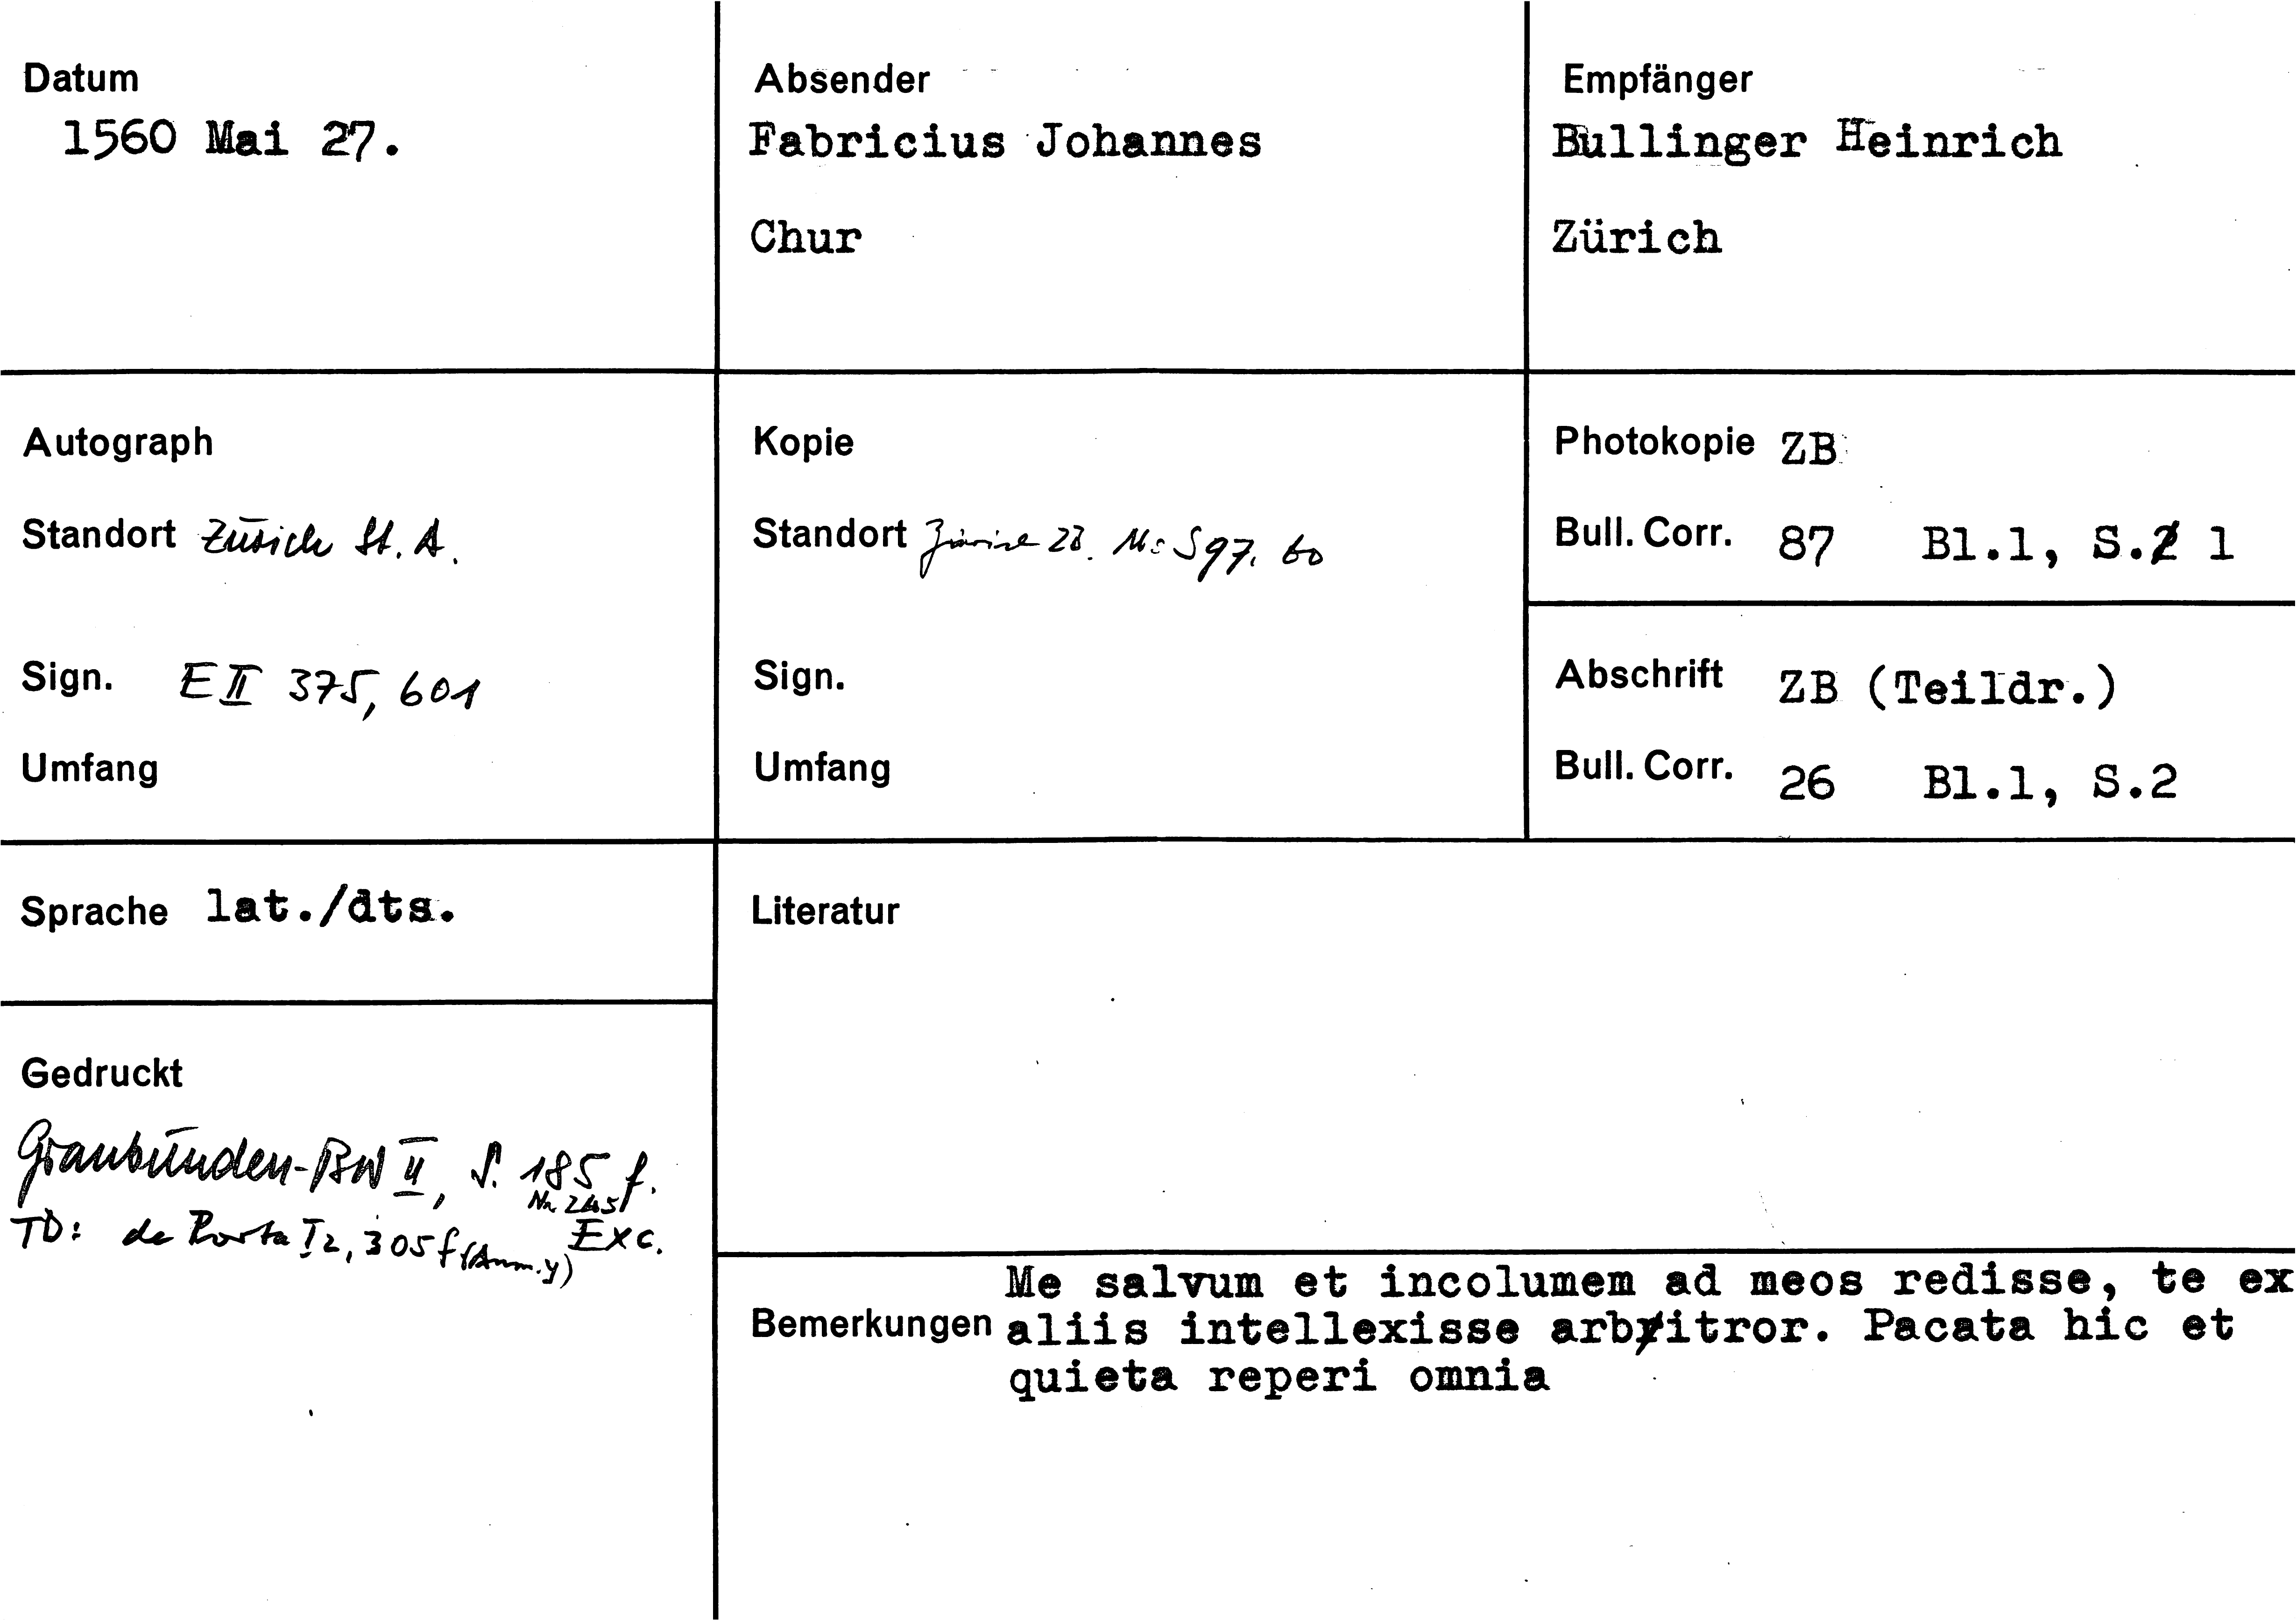 Datum
1560 Mai 27.
Absender
Fabricius Johannes
Chur
Empfänger
Bullinger Heinrich
Zürich
Autograph
Standort Zürich St. A.
Sign. E II 375, 601
Umfang
Kopie
Standort Zürich ZB. Ms S 97, 60
Sign.
Umfang
Photokopie ZB
Bull. Corr. 87 Bl.1, S.2 1
Abschrift ZB (Teildr.)
Bull. Corr. 26 Bl.1, S.2
Sprache lat./dts.
Literatur
Gedruckt
Graubünden-BW II, S. 185 f.
Nr. 245
Exc.
TD: de Porta I 2, 305 f (Anm. y)
Bemerkungen
Me salvum et incolumem ad meos redisse, te ex
aliis intellexisse arbitror. Pacata hic et
quieta reperi omnia